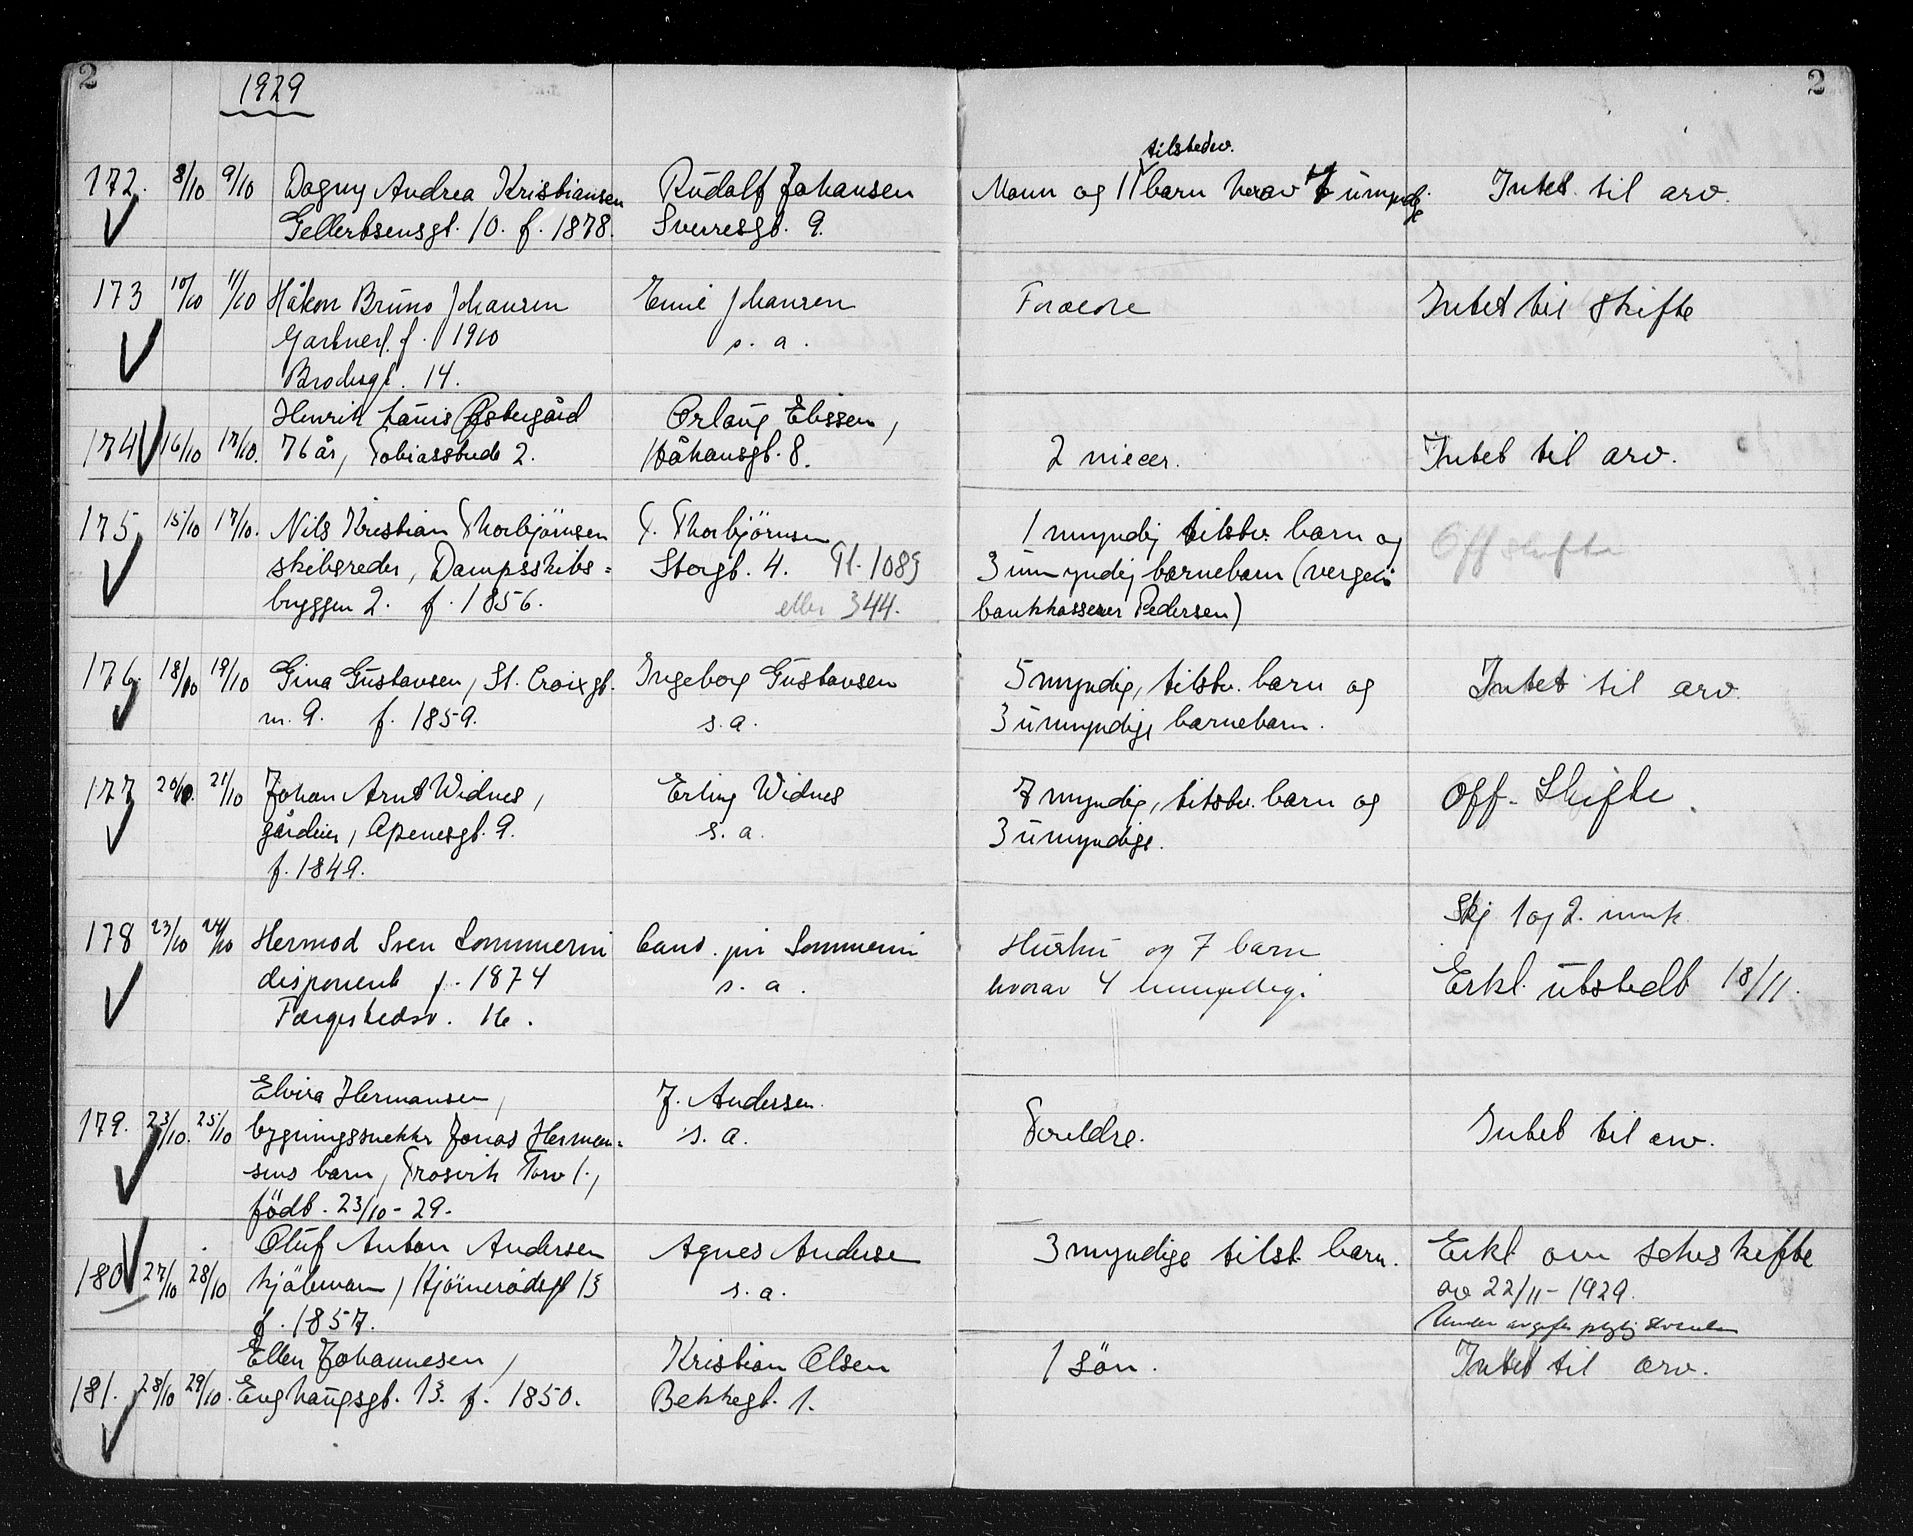 2
1929
2
172. 8/10 9/10 Dagny Andrea Kristiansen Rudolf Johansen Mann og 11 tilstedev. barn herav umyndige Intet til arv.
Gellertsensgt. 10. f. 1878. Sverresgt. 9.
173 10/10 11/10 Håkon Bruno Johansen Emie Johansen Foræere Intet til skifte
Gartnerl. f. 1910 s. a.
Brodesgt. 14.
Henrik Louis Østergård Ørlaug Elissen,
174 16/10 17/10. 76 år, Tobiasstrede 2. Håkonsgt. 8. 2 niecer. Intet til arv.
175 15/10 17/10. Nils Kristian Thorbjörnsen T. Thorbjörnsen 1 myndig tilstv. barn og Off skifte
skibsreder, Dampskibs= Storgt. 4. Tl. 1089 3 umyndig barnebarn (verge:
bryggen 2. f. 1856. eller 344. bankkasserer Pedersen)
176. 18/10 19/10 Gina Gustavsen, St. Croixgt. Ingeborg Gustavsen 5 myndig, tilstv. barn og Intet til arv.
m. 9. f. 1859. s. a. 3 umyndige barnebarn.
177 20/10. 21/10 Johan Arnt Widnes, Erling Widnes 7 myndig, tilstv. barn og Off. Skifte.
gårdeier, Apenesgt. 9. s. a. 3 umyndige.
f. 1849.
Skj 1 og 2. mrk
178 23/10 24/10 Hermod Sven Sommerin Cand. jur Sommerin Hustru og 7 barn
disponent f. 1874 s. a. hvorav 4 umyndig. Erkl. utstedt 18/11.
Færgestedsv. 16.
Elvira Hermansen, J. Andersen.
179. 23/10. 25/10 bygningssnekker Jonas Herman= s. a. Foreldre. Intet til arv.
sens barn, Trosvik Torv 1.,
födt. 23/10-29.
Oluf Anton Andersen Agnes Anderse 3 myndige tilst. barn. Erkl om selvskifte
180 27/10 28/10 kjölman, Hjörnerödsgt 13 s. a. av 22/11-1929.
f. 1857. Under avgifts pligtig
Ellen Johannesen, Kristian Olsen 1 sön. Intet til arv.
181. 28/10 29/10. Enghaugsgt. 13. f. 1850. Bekkegt. 1.